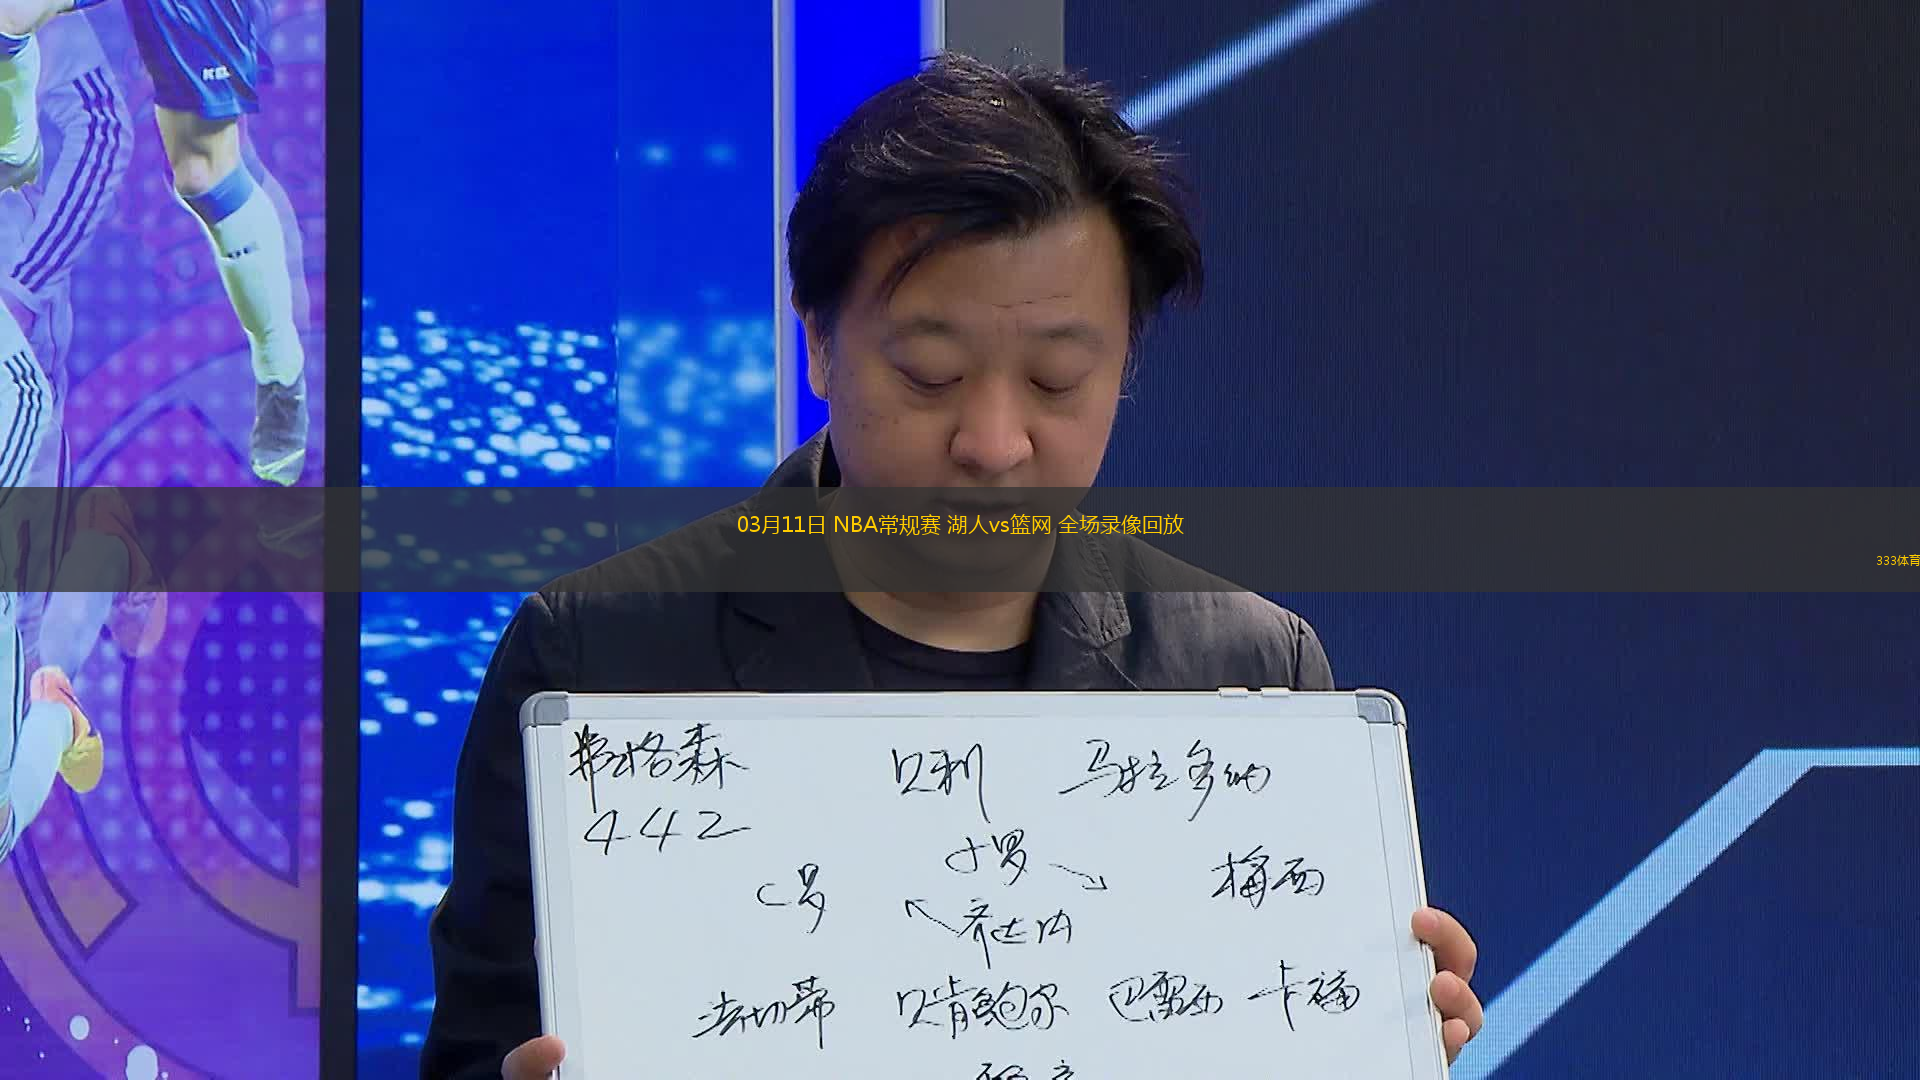 03月11日 NBA常规赛 湖人vs篮网 全场录像回放
333体育
弗格森 贝利 马拉多纳
442
小罗
C罗 梅西
齐达内
法切蒂 贝肯鲍尔 巴雷西 卡福